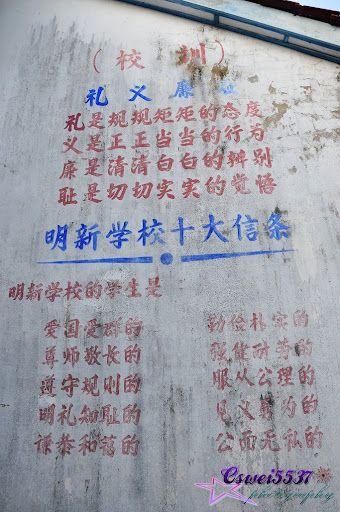 （校训）
礼义廉耻
礼是规规矩矩的态度
义是正正当当的行为
廉是清清白白的辨别
耻是切切实实的觉悟
明新学校十大信条
明新学校的学生是
爱国爱群的
尊师敬长的
遵守规则的
明礼知耻的
谦恭和蔼的
勤俭朴实的
强健耐劳的
服从公理的
见义勇为的
公而无私的
Cswei5537
photography